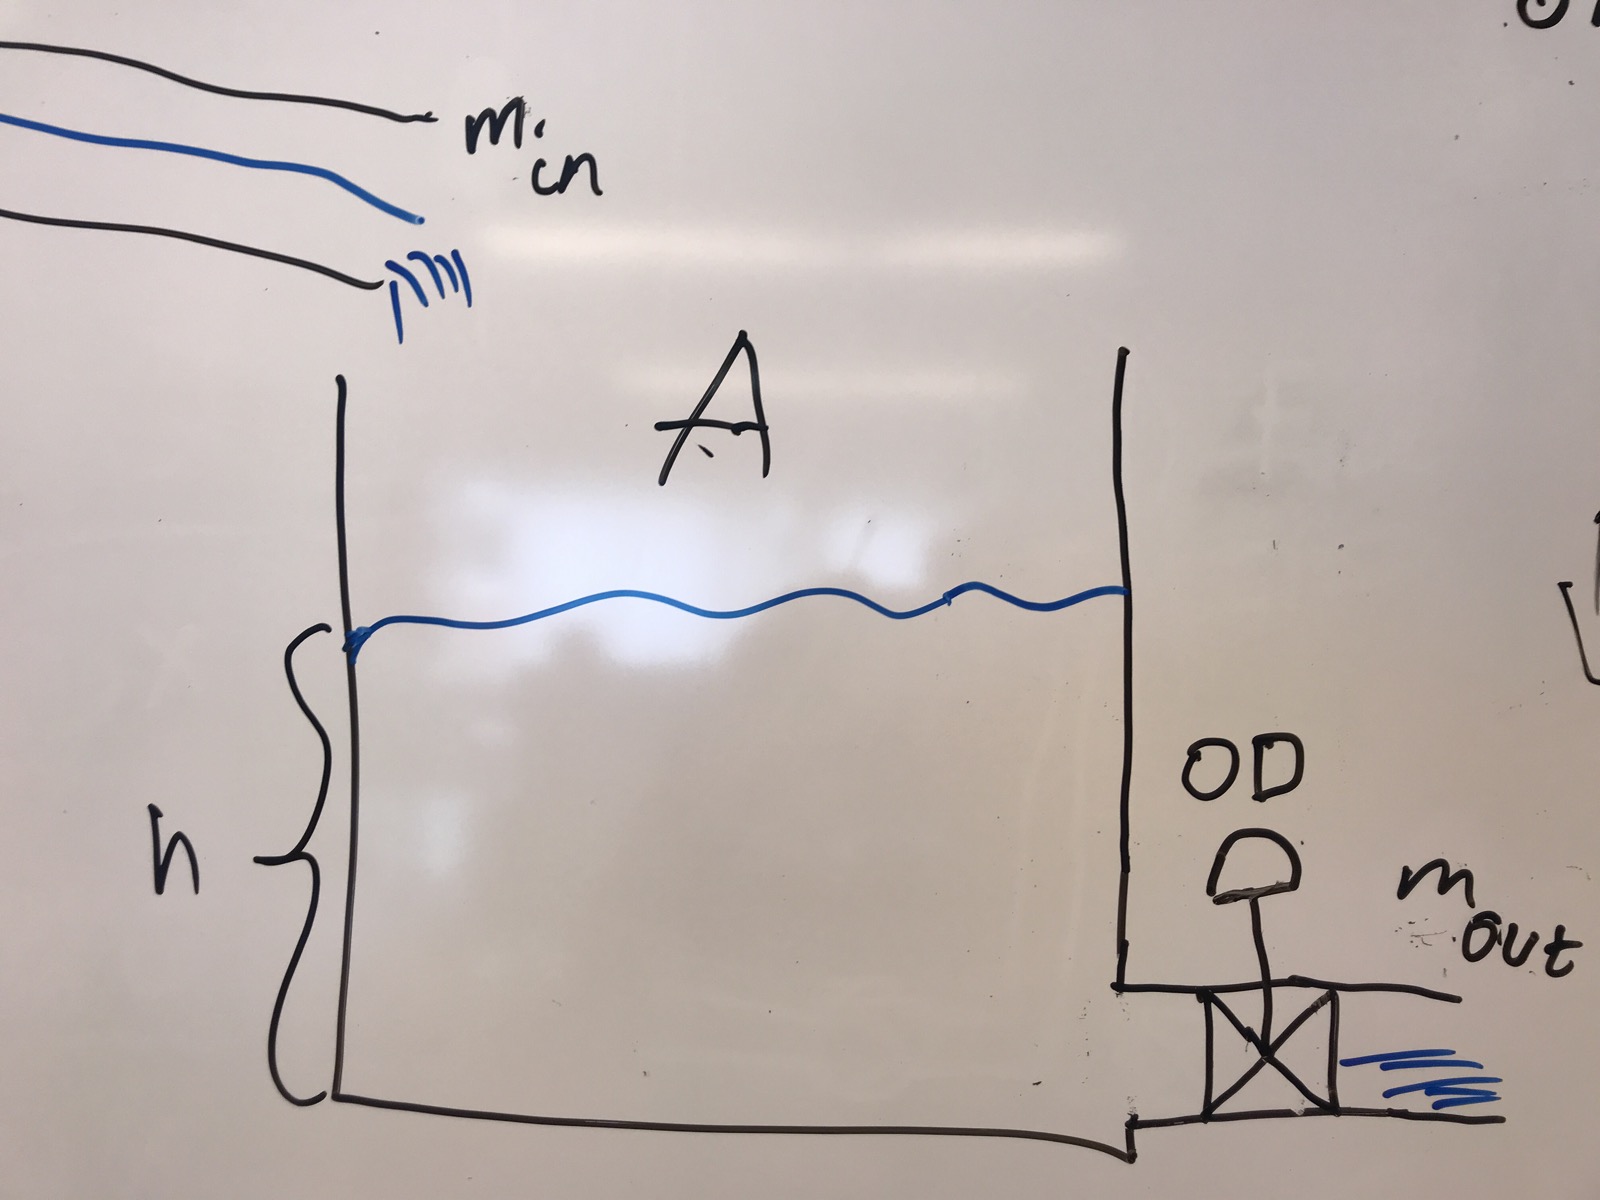 m
in
A
h
OD
m
out